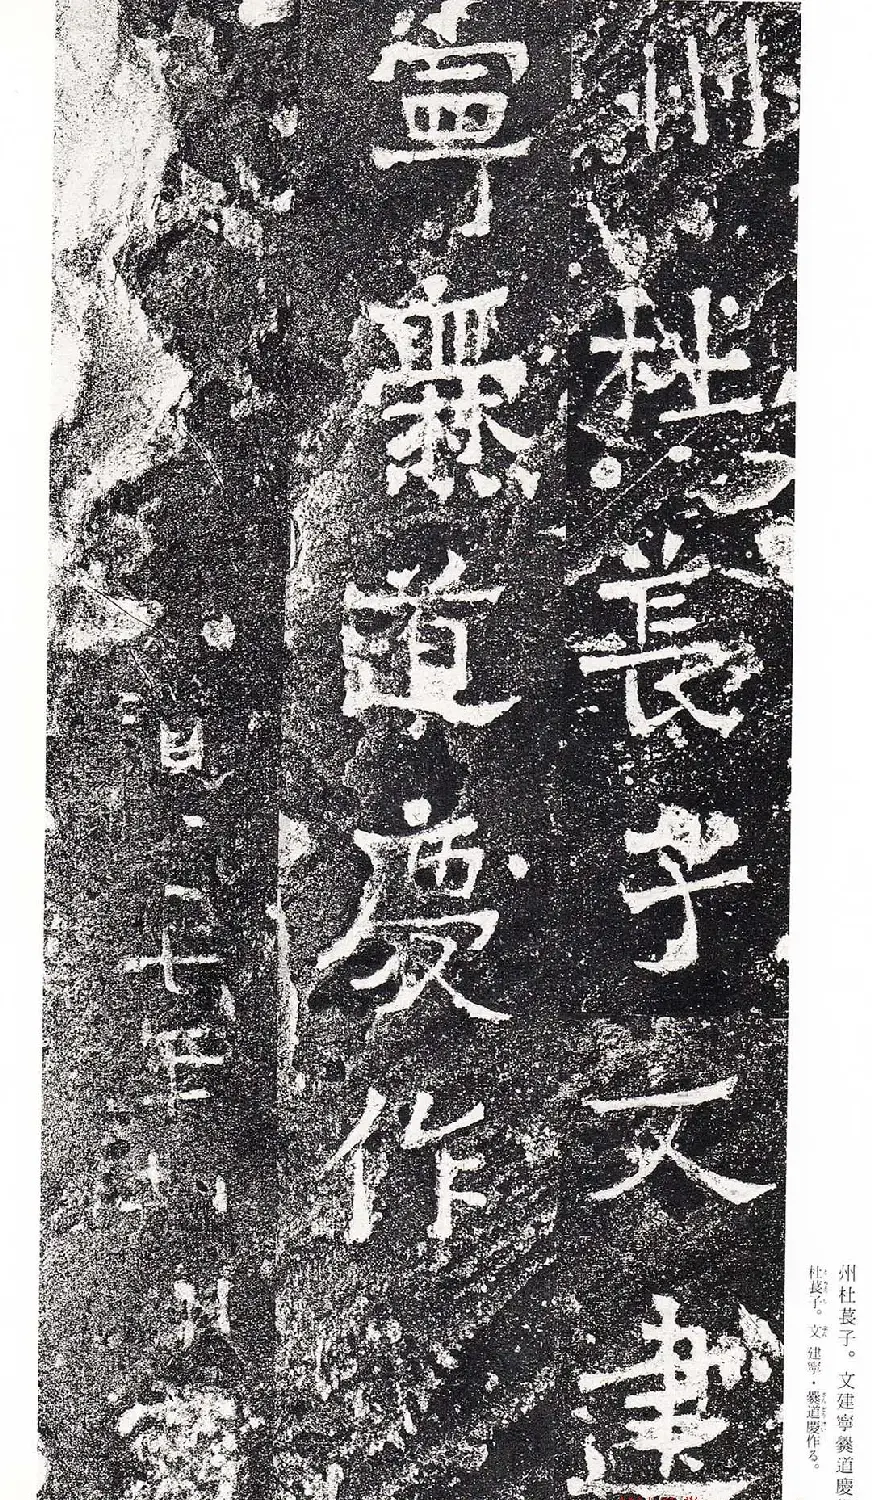 州杜萇子文建
寧爨道慶作
州杜萇子。文建寧爨道慶
杜萇子。文建寧・爨道慶作る。